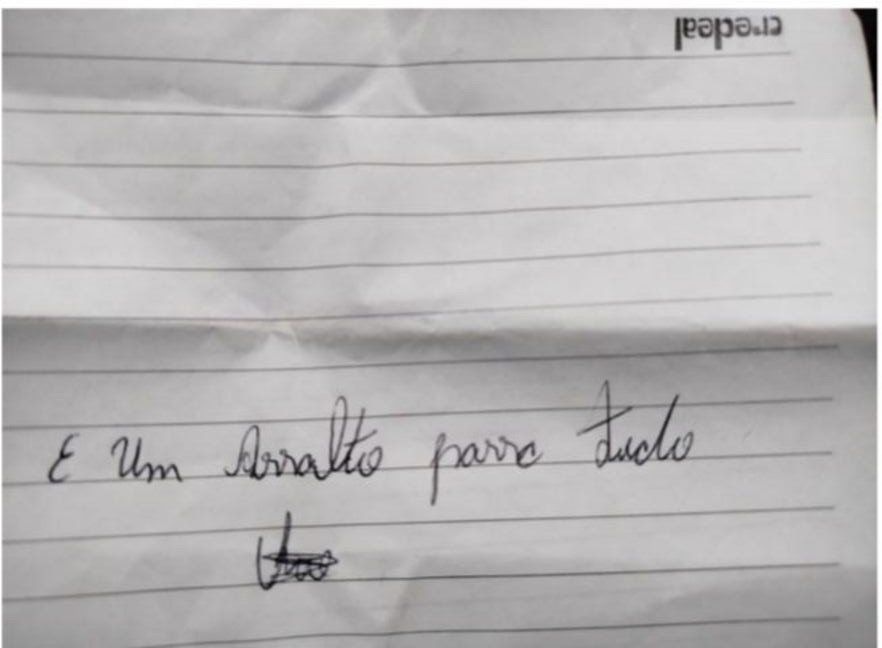 credeal
E Um Assalto passe tudo